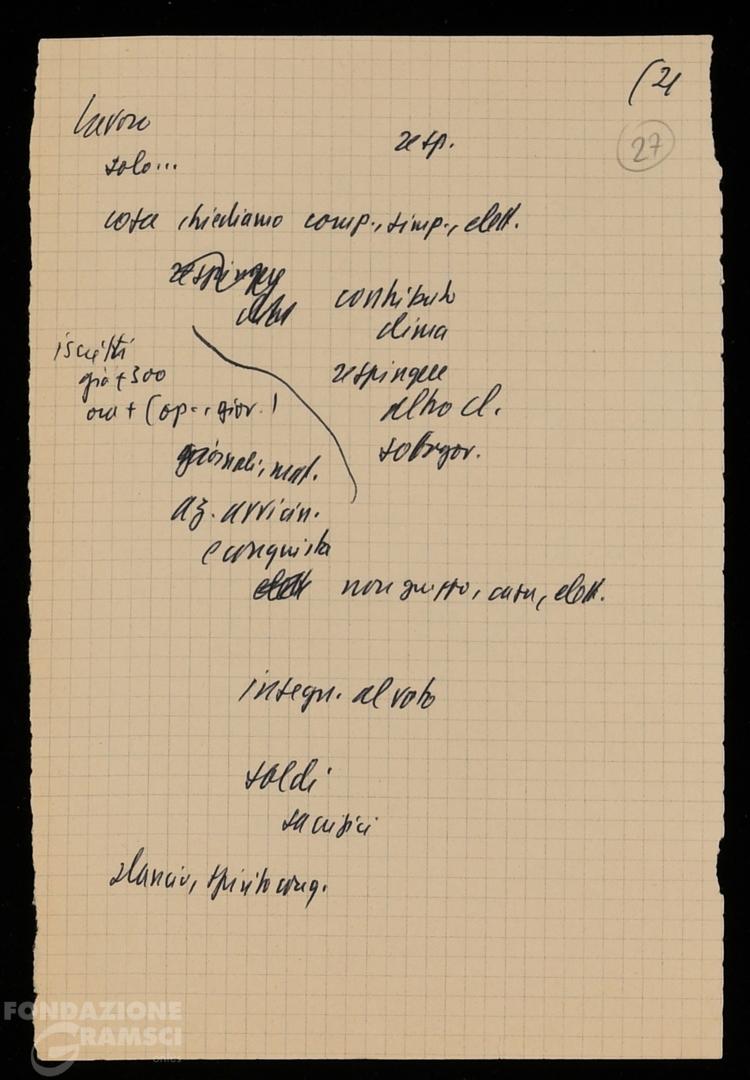 (21
27
lavoro
resp.
solo...
cosa chiediamo comp., simp., elett.
respingere
contributo
clima
iscritti
già + 300
ora + (op., giov.)
respingere
altro cl.
sottogov.
giornali, mat.
az. avvicin.
e conquista
elett non giusto, casa, elett.
insegn. al voto
soldi
sacrifici
slancio, spirito conq.
FONDAZIONE
GRAMSCI
onlus